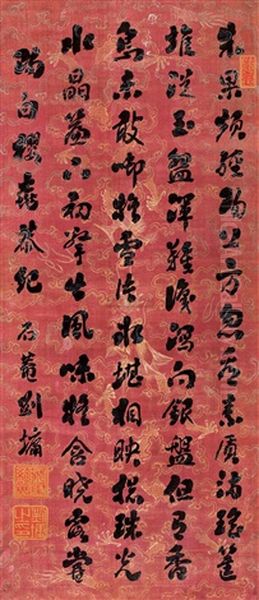 朱果頻經的上方忽看素質滿瑤筐
堆從玉盤渾難識瀉向銀盤但有香
鳥未敢啣疑雪片冰堪相映掇珠光
水晶簾下初擎出風味猶含曉露嘗
賜白櫻桃恭紀 石菴劉墉